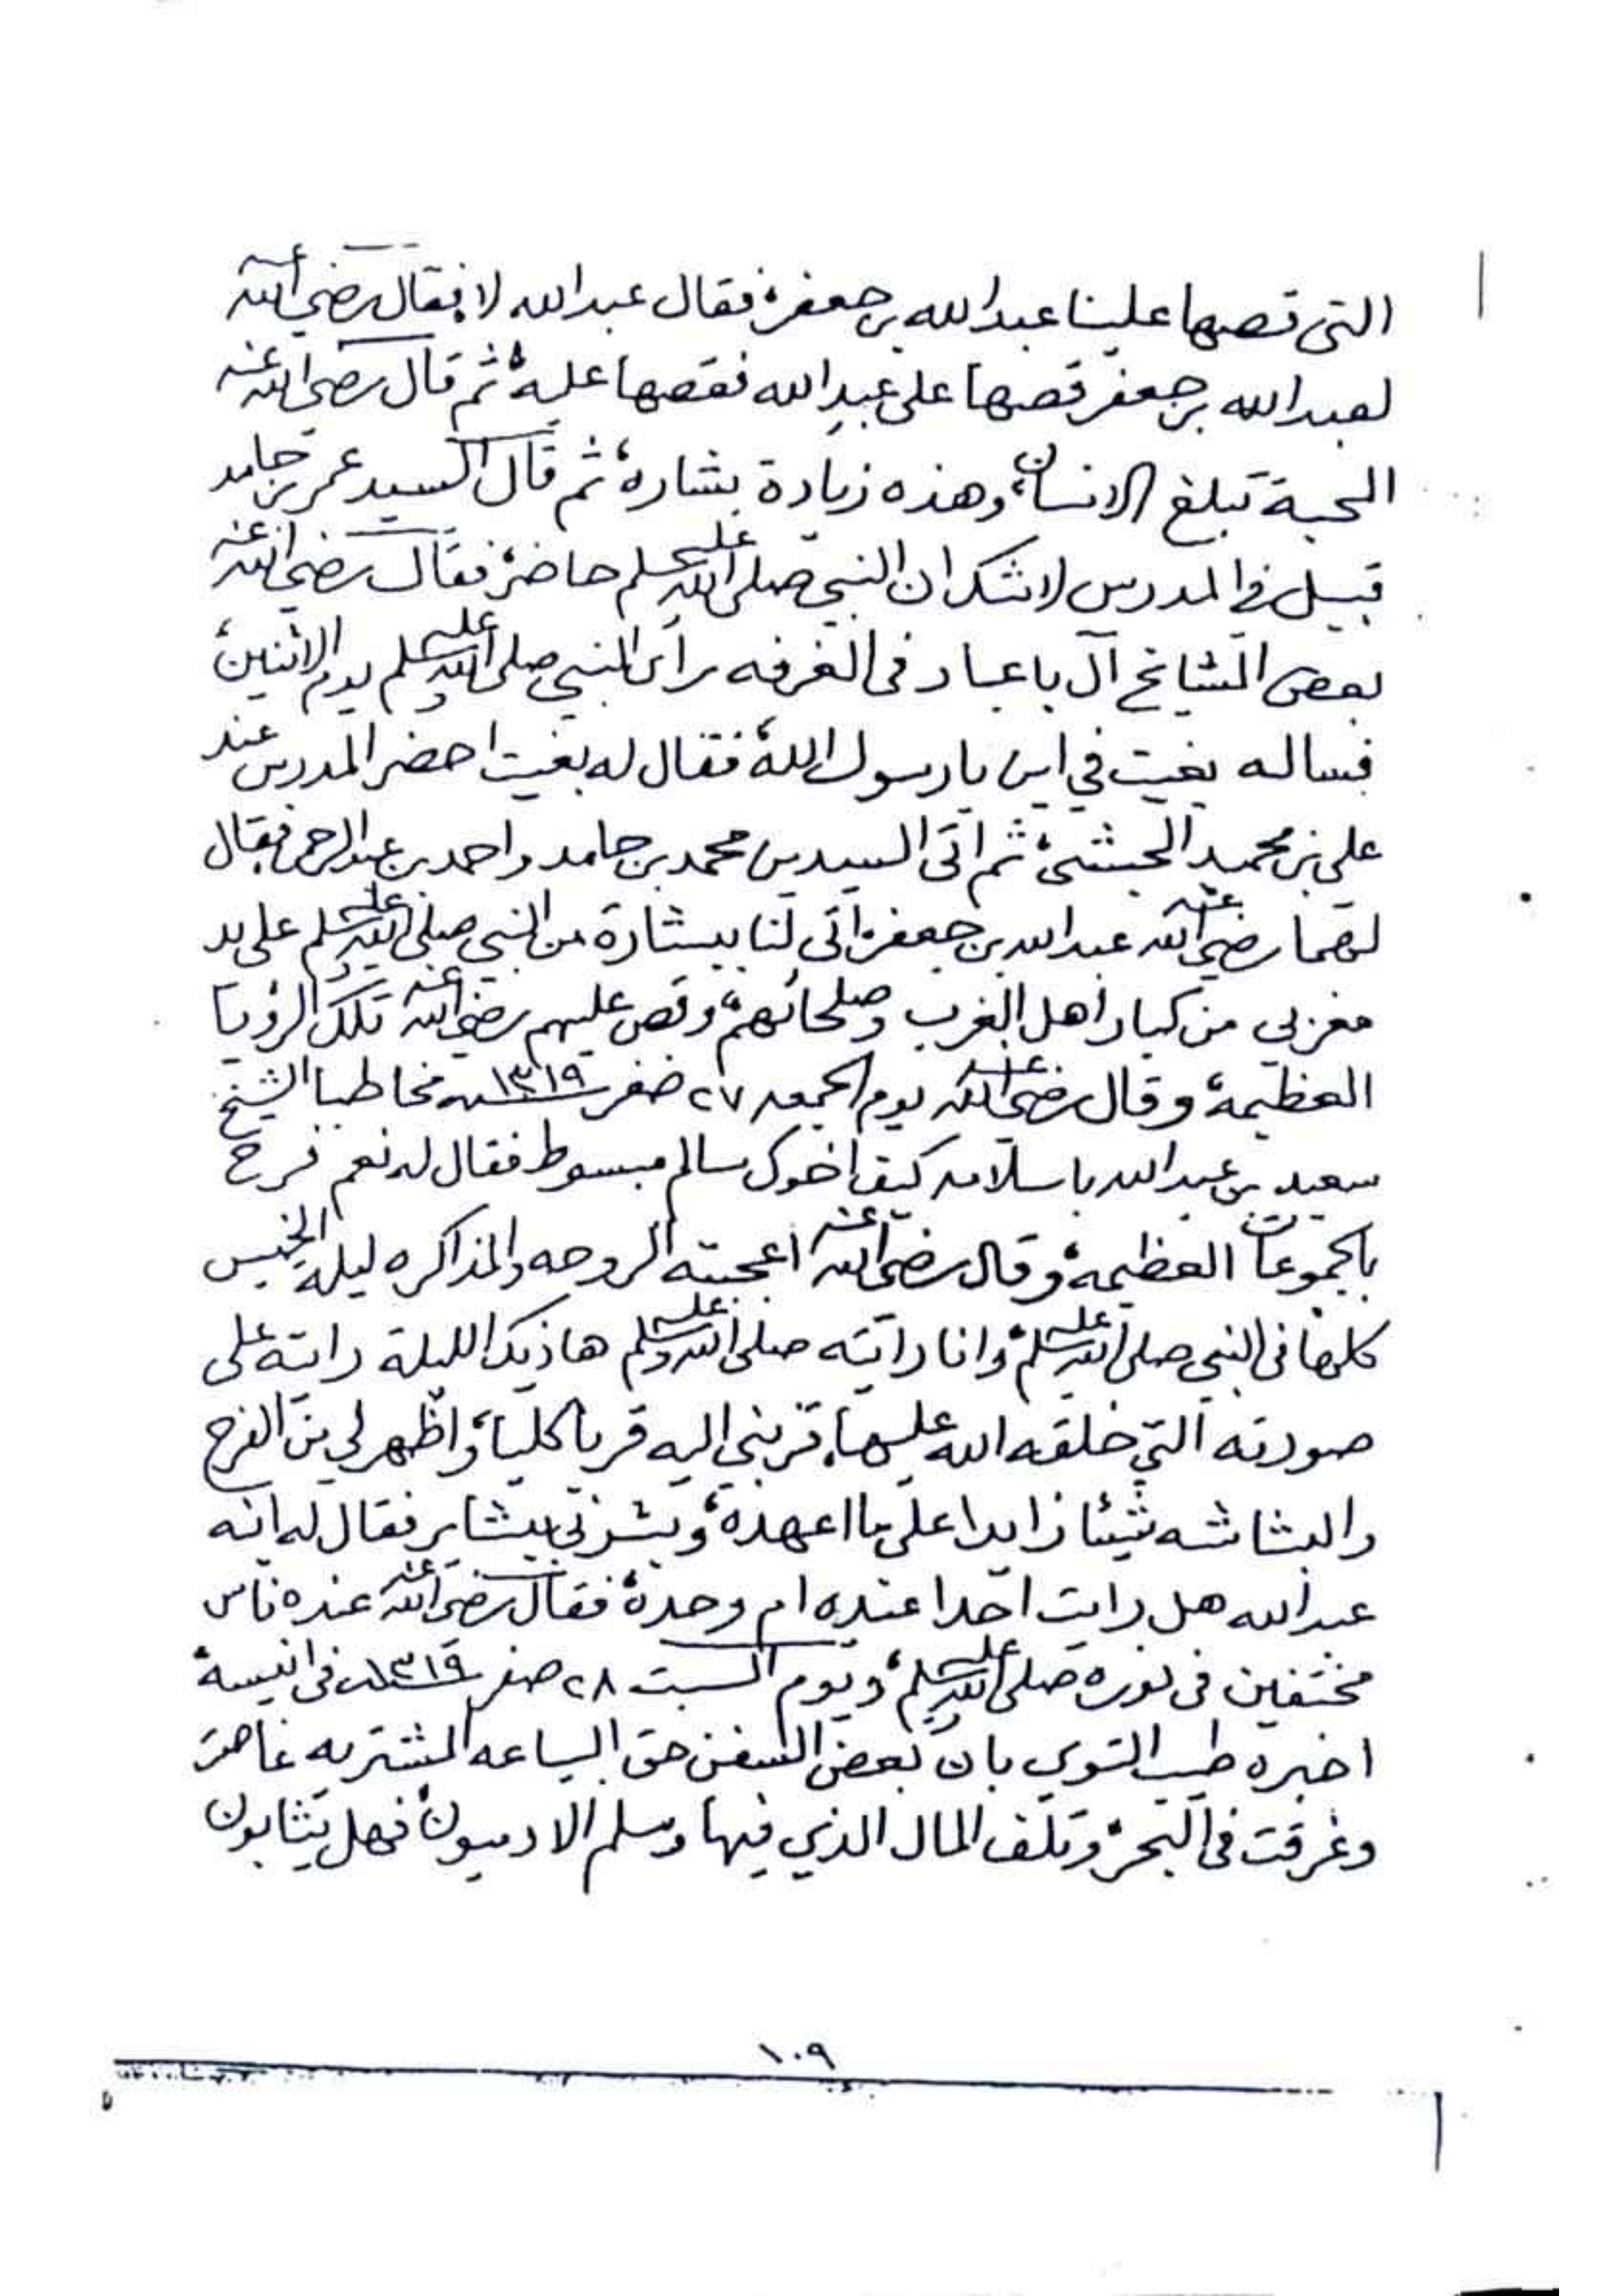 التى قصها علينا عبدالله بن جعفر، فقال عبدالله لا، فقال رضي الله عنه
لعبدالله بن جعفر قصها على عبدالله فقصها عليه، ثم قال رضي الله عنه
المحبة تبلغ الانسان، وهذه زيادة بشاره، ثم قال السيد عمر بن حامد
قبيل في المدرس لاشك ان النبي صلى الله عليه وسلم حاضر، فقال رضي الله عنه
بعض المشايخ آل باعباد فى الغرفه رأى النبي صلى الله عليه وسلم يوم الاثنين،
فساله بغيت في اين يارسول الله، فقال له بغيت احضر المدرس عند
علي بن محمد الحبشي، ثم اتى السيد بن محمد بن حامد واحمد بن عبدالرحمن فقال
لهما رضي الله عنه عبدالله بن جعفر اتى لنا ببشارة من النبي صلى الله عليه وسلم على يد
مغربي من كبار اهل الغرب وصلحائهم، وقص عليهم رضي الله عنه تلك الرؤيا
العظيمة، وقال رضي الله عنه يوم الجمعه ٢٧ صفر سنة ١٣١٩ مخاطبا الشيخ
سعيد بن عبدالله باسلامه كيف اخوك سالم مبسوط فقال له نعم فرح
بالجموعات العظيمه، وقال رضي الله عنه اعجبته الروحه والمذاكره ليلة الخميس
كلها فى النبي صلى الله عليه وسلم، وانا رايته صلى الله عليه وسلم هاذيك الليلة رايته على
صورته التي خلقه الله عليها، قربني اليه قربا كليا، واظهر لي من الفرح
والبشاشه شيئا زايدا على ما اعهده، وبشرني ببشاير فقال له ابنه
عبدالله هل رايت احدا عنده ام وحده، فقال رضي الله عنه عنده ناس
مختفين فى نوره صلى الله عليه وسلم، ويوم السبت ٢٨ صفر سنة ١٣١٩ فى انيسة،
اخبره طيب التوي بان بعض السفن حق البساعه المشتريه غاصت
وغرقت فى البحر، وتلف المال الذي فيها وسلم الادميون، فهل يثابون
١٠٩